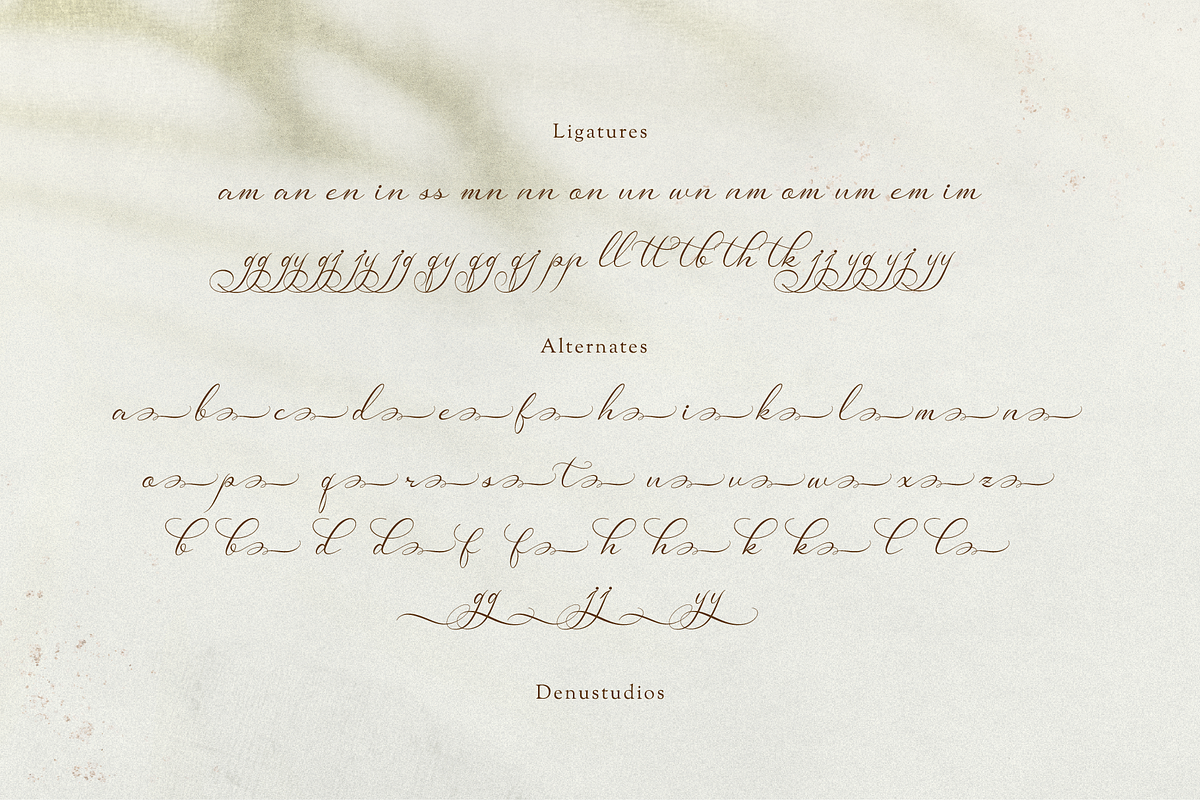 Ligatures
am an en in ss mn nn on un wn nm om um em im
gg gy gj jy jg qy qg qj pp ll tt tb th tk jj yg yj yy
Alternates
a b c d e f h i k l m n
o p q r s t u v w x z
b b d d f f h h k k l l
gg jj yy
Denustudios